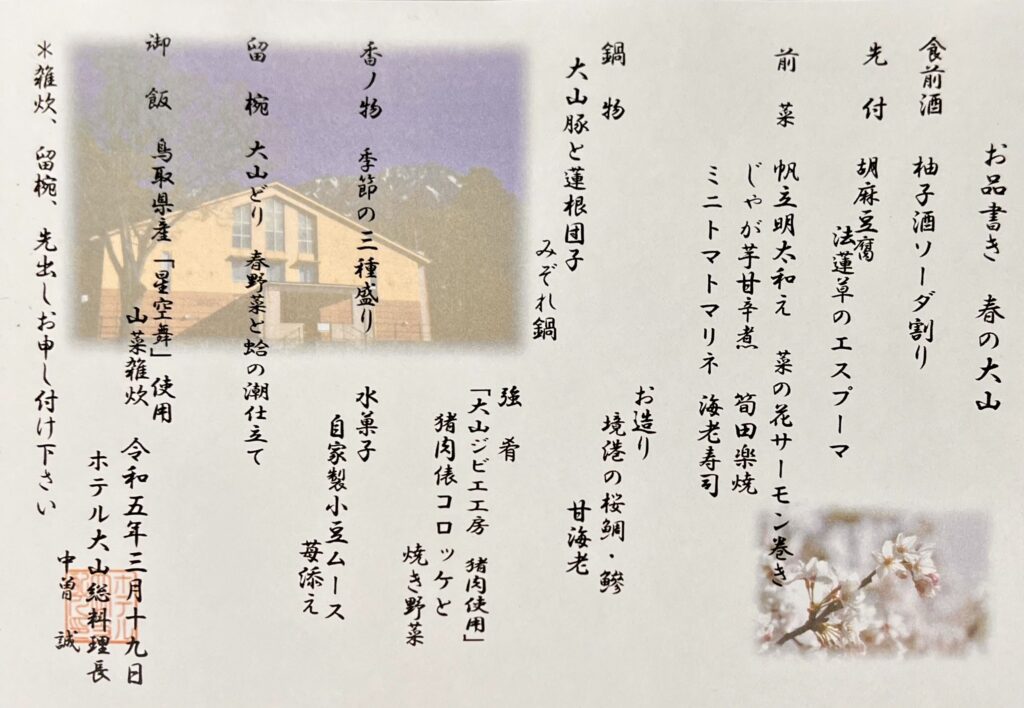 お品書き　春の大山
食前酒　柚子酒ソーダ割り
先　付　胡麻豆腐
法蓮草のエスプーマ
前　菜　帆立明太和え　菜の花サーモン巻き
じゃが芋甘辛煮　筍田楽焼
ミニトマトマリネ　海老寿司
お造り
境港の桜鯛・鰺
甘海老
鍋　物
大山豚と蓮根団子
みぞれ鍋
強　肴
「大山ジビエ工房　猪肉使用」
猪肉俵コロッケと
焼き野菜
香ノ物　季節の三種盛り
水菓子
自家製小豆ムース
苺添え
留　椀　大山どり　春野菜と蛤の潮仕立て
御　飯　鳥取県産「星空舞」使用
山菜雑炊
＊雑炊、留椀、先出しお申し付け下さい
令和五年三月十九日
ホテル大山総料理長
中曽　誠